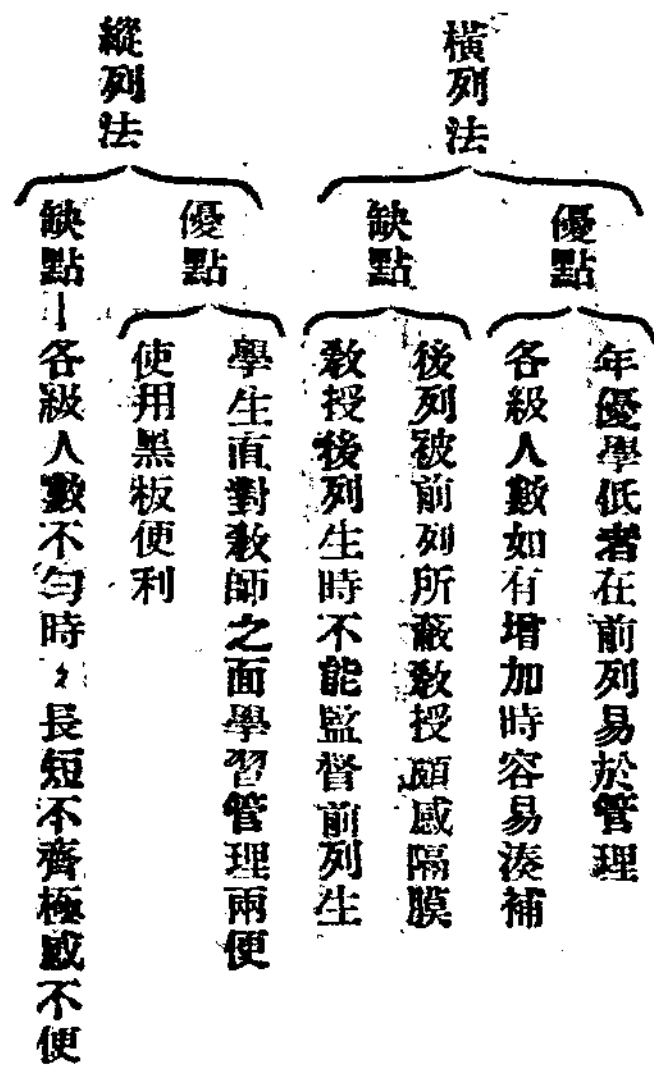 橫列法
優點
年優學低者在前列易於管理
各級人數如有增加時容易湊補
缺點
後列被前列所蔽教授頗感隔膜
教授後列生時不能監督前列生
縱列法
優點
學生直對教師之面學習管理兩便
使用黑板便利
缺點—各級人數不勻時,長短不齊極感不便